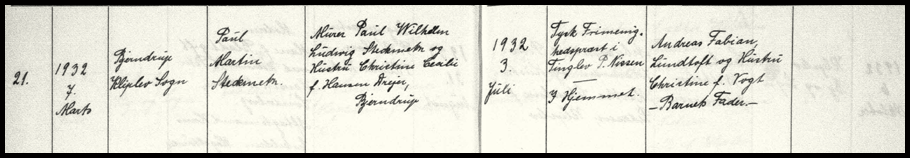 21.
1932
7.
Marts
Bjerndrup
Kliplev Sogn
Paul
Martin
Murer Paul Wilhelm
Ludwig og
Hustru Christine Cecilie
f. Hansen Drejer,
Bjerndrup
1932
3.
Juli
Tysk Frimenig-
hedspræst i
Tinglev P. Nissen
—
I Hjemmet.
Andreas Fabian,
Lundtoft og Hustru
Christine f. Vogt
- Barnets Fader. -